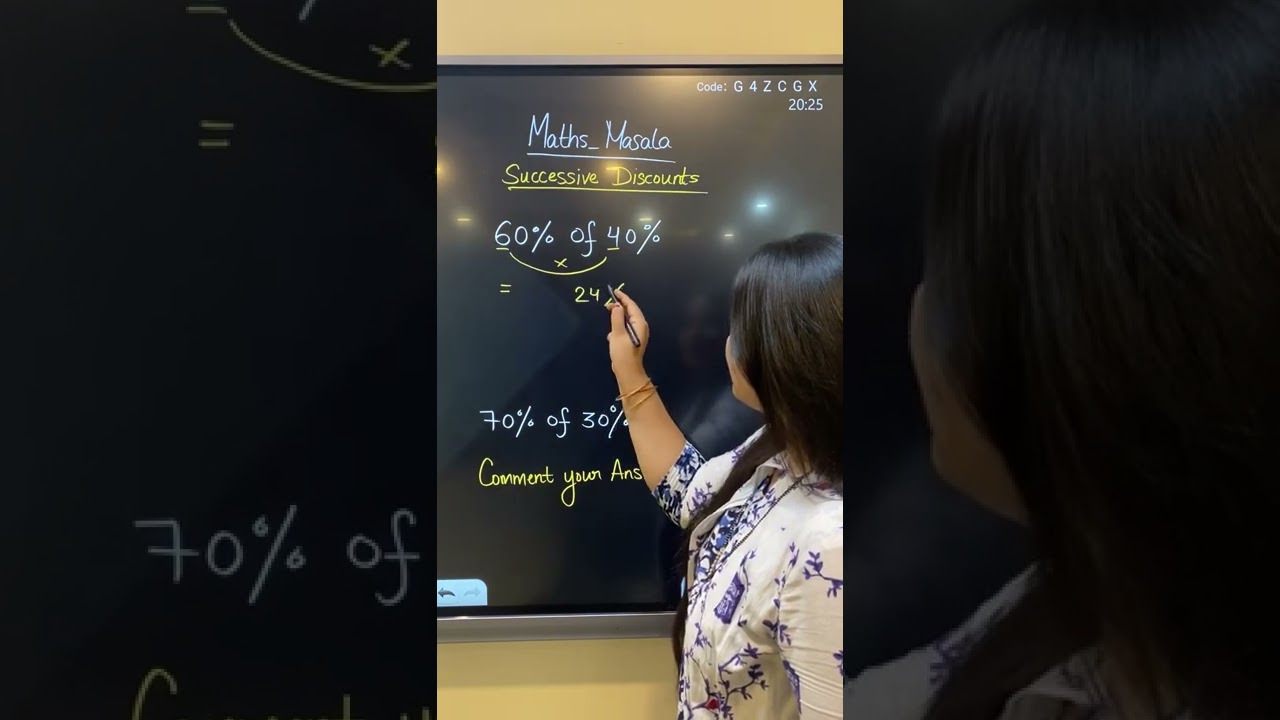 Code: G 4 Z C G X
20:25
Maths_Masala
Successive Discounts
60% of 40%
x
= 24
70% of 30%
Comment your Ans